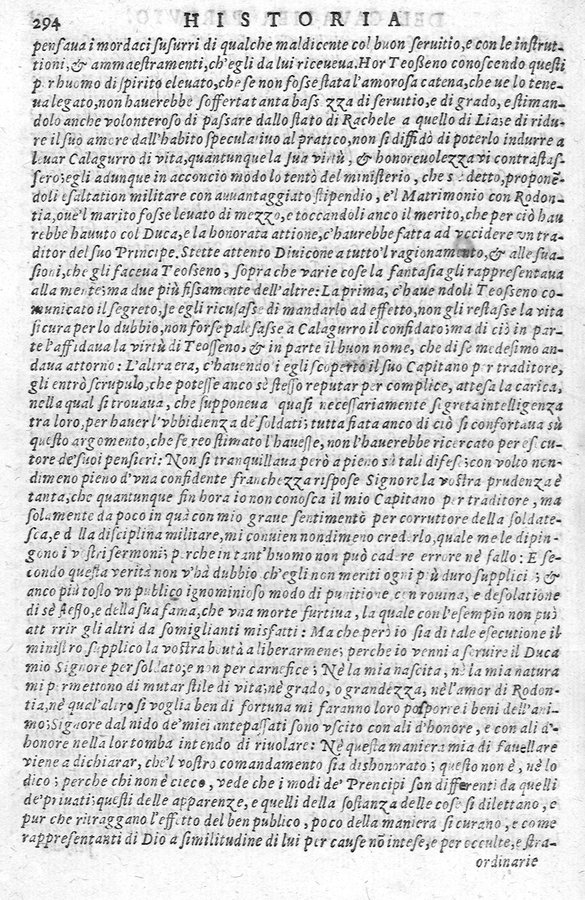 294 HISTORIA
pensava i mordaci susurri di qualche maldicente col buon servitio, e con le instrut-
tioni, & ammaestramenti, ch'egli da lui riceveva. Hor Teosseno conoscendo questi
per huomo di spirito elevato, che se non fosse stata l'amorosa catena, che ve lo tene-
va legato, non haverebbe soffert at anta bass zza di servitio, e di grado, e stiman-
dolo anche volonteroso di passare dallo stato di Rachele a quello di Lia, e di ridu-
re il suo amore dall'habito specula ivo al pratico, non si diffidò di poterlo indurre a
levar Calagurro di vita, quantunque la sua virtù, & honorevolezza vi contrastas-
sero; egli adunque in acconcio modo lo tentò del ministerio, che s è detto, proponē-
doli esaltation militare con avvantaggiato stipendio, e'l Matrimonio con Rodon-
tia, ove'l marito fosse levato di mezzo, e toccandoli anco il merito, che perciò hau
rebbe havuto col Duca, e la honorata attione, c'haurebbe fatta ad vccidere vn tra-
ditor del suo Principe. Stette attento Divicone a tutto'l ragionamento, & alle sua-
sioni, che gli faceva Teosseno, sopra che varie cose la fantasia gli rappresentava
alla mente; ma due più fissamente dell'altre: La prima, c'have ndoli Teosseno co-
municato il segreto, se egli ricusasse di mandarlo ad effetto, non gli restasse la vita
sicura per lo dubbio, non forse palesasse a Calagurro il confidato; ma di ciò in par-
te l'affidava la virtù di Teosseno, & in parte il buon nome, che di se medesimo an-
dava attorno: L'altra era, c'havendo i egli scoperto il suo Capitano per traditore,
gli entrò scrupulo, che potesse anco sè stesso reputar per complice, attesa la carica,
nella qual si trovava, che supponeva quasi necessariamente segreta intelligenza
tra loro, per haver l'vbbidienza de' soldati; tutta fiata anco di ciò si confortava sù
questo argomento, che se reo stimato l'havesse, non l'haverebbe ricercato per es cu-
tore de' suoi pensieri: Non si tranquillava però a pieno sù tali difese; con volto non-
dimeno pieno d'vna confidente franchezza rispose Signore la vostra prudenza è
tanta, che quantunque fin hora io non conosca il mio Capitano per traditore, ma
solamente da poco in quà con mio grave sentimento per corruttore della soldate-
sca, e d lla disciplina militare, mi convien nondimeno crederlo, quale me le dipin-
gono i vostri sermoni; perche in tant'huomo non può cad re errore nè fallo: E se-
condo questa verità non v'hà dubbio ch'egli non meriti ogni più duro supplici ; &
anco più tosto vn publico ignominioso modo di punitione con rovina, e desolatione
di sè stesso, e della sua fama, che vna morte furtiva, la quale con l'esempio non può
att rrir gli altri da somiglianti misfatti: Ma che però io sia di tale esecutione il
ministro supplico la vostra bontà a liberarmene; perche io venni a servire il Duca
mio Signore per soldato, e non per carnefice; Nè la mia nascita, nè la mia natura
mi permettono di mutar stile di vita; nè grado, o grandezza, nè l'amor di Rodon-
tia, nè qual'altro si voglia ben di fortuna mi faranno loro posporre i beni dell'ani-
mo; Signore dal nido de' miei antepassati sono vscito con ali d'honore, e con ali d'
honore nella lor tomba intendo di rivolare: Nè questa maniera mia di favellare
viene a dichiarar, che'l vostro comandamento sia dishonorato; questo non è, nè lo
dico; perche chi non è cieco, vede che i modi de' Prencipi son differenti da quelli
de' privati; questi delle apparenze, e quelli della sostanza delle cose si dilettano, e
pur che ritraggano l'effetto del ben publico, poco della maniera si curano, e come
rappresentanti di Dio a similitudine di lui per cause nõ intese, e per occulte, e stra-
ordinarie